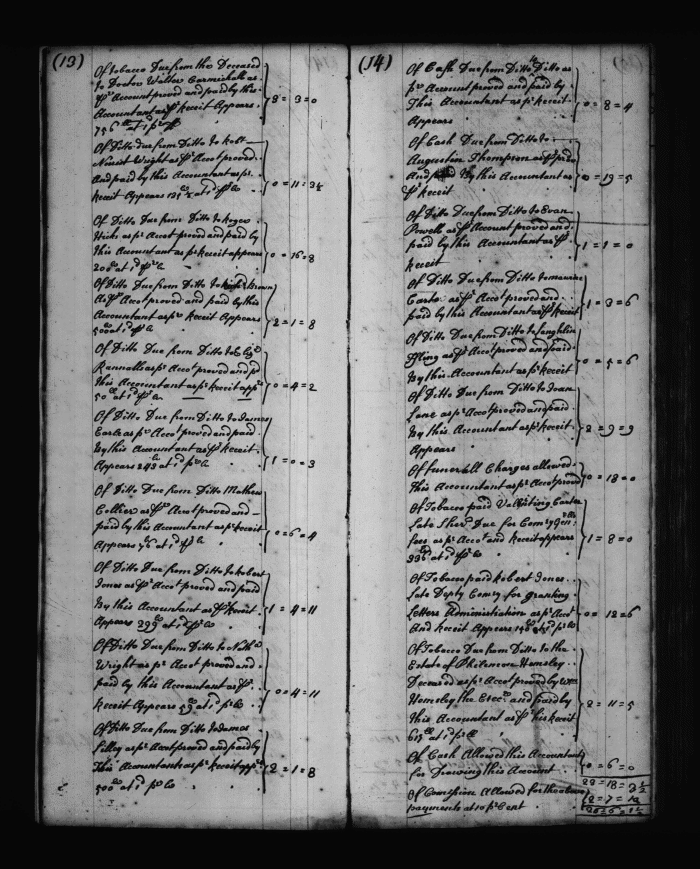 (13)
Of Tobacco Due from the Deceased
to Doctor Walter Carmichall as
pr Account proved and paid by this
Accountant as pr Receit Appears
756 lb at 1d pr lb
3 = 3 = 0
Of Ditto due from Ditto to
Wright as pr Accot proved
And paid by this Accountant as pr
Receit Appears at 1d pr lb
0 = 11 = 3¼
Of Ditto Due from Ditto to Roger
Hicks as pr Accot proved and paid by
this Accountant as pr Receit appears
200 at 1d pr lb
0 = 16 = 8
Of Ditto Due from Ditto to Brown
As pr Accot proved and paid by this
Accountant as pr Receit Appears
500 at 1d pr lb
2 = 1 = 8
Of Ditto Due from Ditto to
as pr Accot proved and pd
this Accountant as pr Receit apprs
50 lb at 1d pr lb
0 = 4 = 2
Of Ditto Due from Ditto to James
Earle as pr Accot proved and paid
By this Accountant as pr Receit
Appears 243 at 1d pr lb
1 = 0 = 3
Of Ditto Due from Ditto Mathew
Collier as pr Accot proved and
paid by this Accountant as pr Receit
Appears 76 at 1d pr lb
0 = 6 = 4
Of Ditto Due from Ditto to Robert
Jones as pr Accot proved and paid
By this Accountant as pr Receit
Appears 299 at 1d pr lb
1 = 4 = 11
Of Ditto Due from Ditto to Nathl
Wright as pr Accot proved and
paid by this Accountant as pr
Receit Appears 59 at 1d pr lb
0 = 4 = 11
Of Ditto Due from Ditto to James
Tilley as pr Accot proved and paid by
This Accountant as pr Receit apprs
500 at 1d pr lb
2 = 1 = 8
(14)
Of Cash Due from Ditto to Ditto as
pr Account proved and paid by
This Accountant as pr Receit
Appears
0 = 8 = 4
Of Cash Due from Ditto to
Augustin Thompson as pr
And paid By this Accountant as
pr Receit
0 = 19 = 5
Of Ditto Due from Ditto to Evan
Powell as pr Account proved and
paid by this Accountant as pr
Receit
1 = 1 = 0
Of Ditto Due from Ditto to
as pr Accot proved and
paid by this Accountant as pr Receit
1 = 3 = 6
Of Ditto Due from Ditto to
as pr Accot proved and paid
By this Accountant as pr Receit
0 = 5 = 6
Of Ditto Due from Ditto to
Lane as pr Accot proved and paid
By this Accountant as pr Receit
Appears
2 = 9 = 9
Of funerall Charges allowed
This Accountant as pr Accot proved
0 = 18 = 0
Of Tobacco paid Vallinting Carter
Late Sherf Due for
fees as pr Accot and Receit appears
336 at 1d pr lb
1 = 8 = 0
Of Tobacco paid Robert Jones
Late Depty Comry for granting
Letters Administration as pr Accot
And Receit Appears 150 at 1d pr lb
0 = 12 = 6
Of Tobacco Due from Ditto to the
Estate of Philemon Hemsley
Deceased as pr Accot proved by Wm
Hemsley the Exec and paid by
this Accountant as pr his Receit
617 at 1d pr lb
2 = 11 = 5
Of Cash Allowed this Accountant
for Drawing this Account
0 = 6 = 0
Of Comssion Allowed for the above
payments at 10 pr Cent